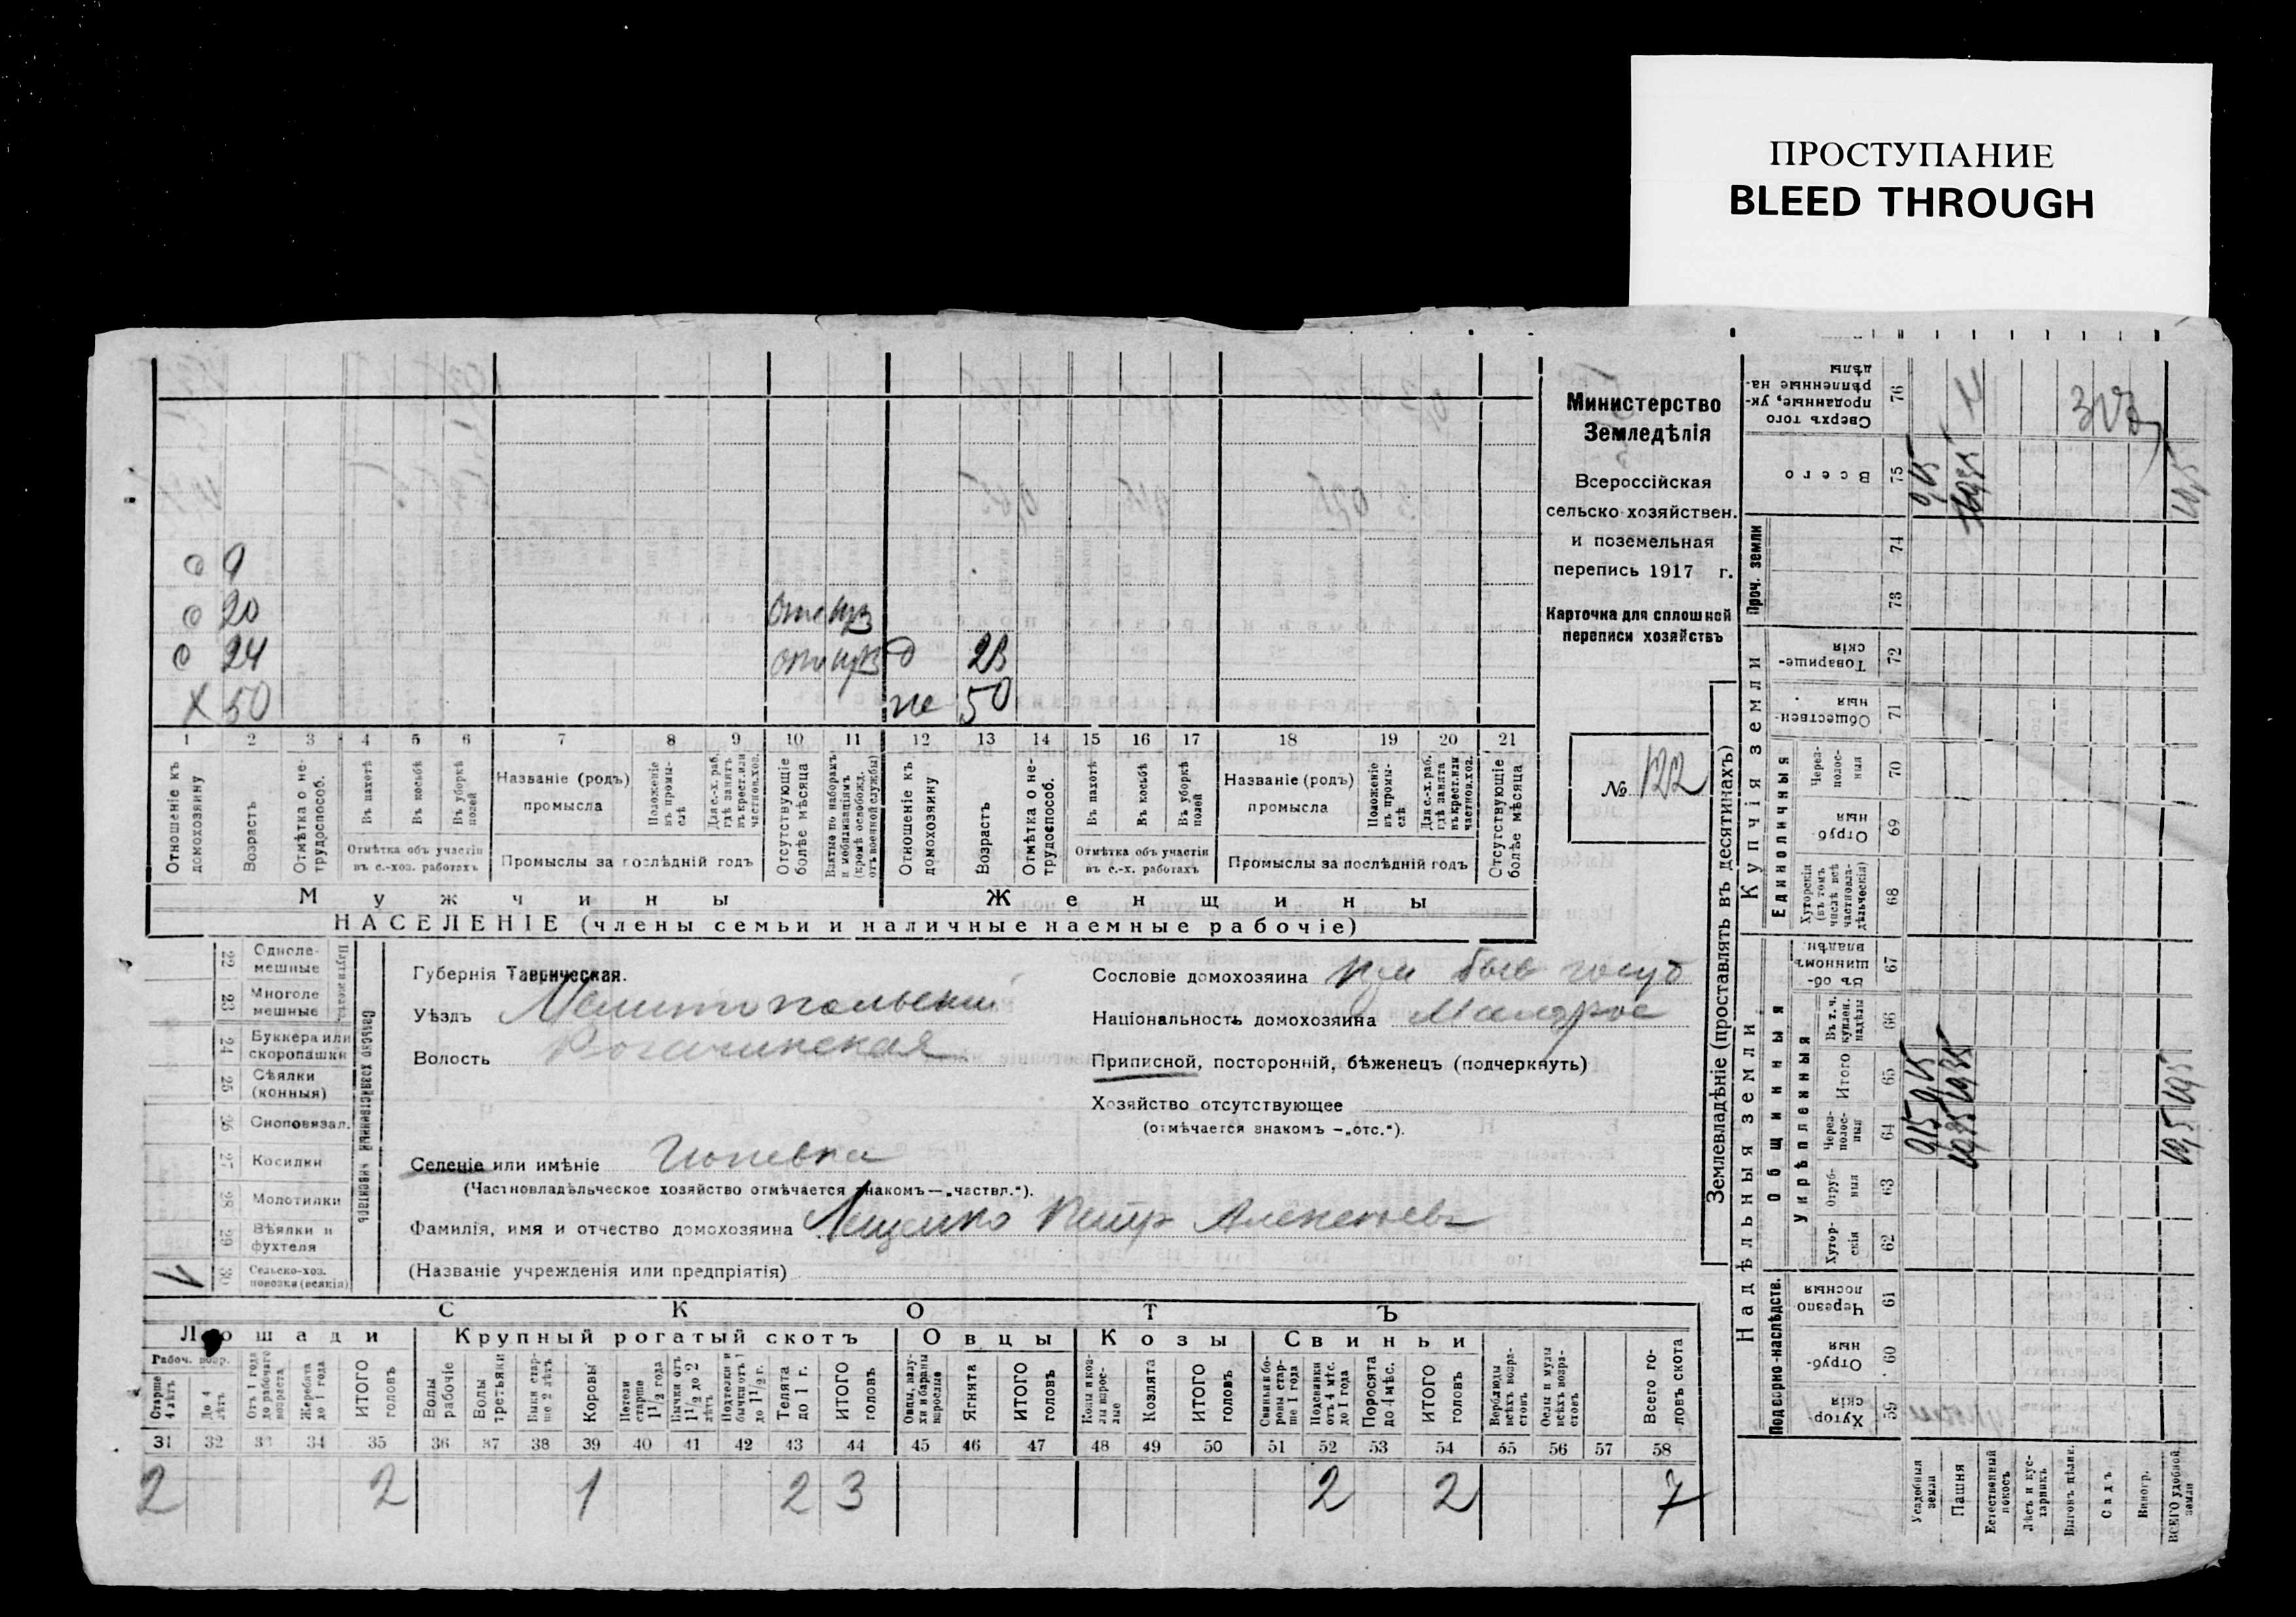 ПРОСТУПАНИЕ
BLEED THROUGH
о 9
о 20
о 24 д 23
х 50 же 50
1 2 3 4 5 6 7 8 9 10 11 12 13 14 15 16 17 18 19 20 21
Отношеніе къ домохозяину
Возрастъ
Отмѣтка о не-трудоспособ.
Въ пахотѣ
Въ косьбѣ
Въ уборкѣ полей
Отмѣтка объ участіи въ с.-хоз. работахъ
Названіе (родъ) промысла
Положеніе въ промы-слѣ
Для с.-х. раб. гдѣ занятъ въ крест. или частнов. хоз.
Промыслы за послѣдній годъ
Отсутствующіе болѣе мѣсяца
Взятые по наборамъ и мобилизаціямъ (кромѣ освобожд. отъ военной службы)
Отношеніе къ домохозяину
Возрастъ
Отмѣтка о не-трудоспособ.
Въ пахотѣ
Въ косьбѣ
Въ уборкѣ полей
Отмѣтка объ участіи въ с.-х. работахъ
Названіе (родъ) промысла
Положеніе въ промы-слѣ
Для с.-х. раб. гдѣ занята въ крест. или частнов. хоз.
Промыслы за послѣдній годъ
Отсутствующіе болѣе мѣсяца
Мужчины Женщины
НАСЕЛЕНІЕ (члены семьи и наличные наемные рабочіе)
Министерство
Земледѣлія
Всероссійская
сельско-хозяйствен.
и поземельная
перепись 1917 г.
Карточка для сплошной
переписи хозяйствъ
№ 122
22 Одноле-мешные
23 Многоле мешные
24 Буккера или скоропашки
25 Сѣялки (конныя)
26 Сноповязал.
27 Косилки
28 Молотилки
29 Вѣялки и фухтеля
30 Сельско-хоз. повозки (всякія)
Губернія Таврическая.
Уѣздъ Мелитопольский
Волость Рогачинская
Селеніе или имѣніе
(Частновладѣльческое хозяйство отмѣчается знакомъ—„частвл.“).
Фамилія, имя и отчество домохозяина Лещенко Петр Алексеевъ
(Названіе учрежденія или предпріятія)
Сословіе домохозяина
Національность домохозяина Малорос
Приписной, посторонній, бѣженецъ (подчеркнуть)
Хозяйство отсутствующее
(отмѣчается знакомъ —„отс.“).
СКОТЪ
Лошади Крупный рогатый скотъ Овцы Козы Свиньи
Рабоч. возр.
Старше 4 лѣтъ
До 4 лѣтъ
Отъ 1 года до рабочаго возраста
Жеребята до 1 года
ИТОГО головъ
Волы рабочіе
Волы третьяки
Быки стар-ше 2 лѣтъ
Коровы
Нетели старше 1 1/2 года
Бычки отъ 1 1/2 до 2 лѣтъ
Подтелки и бычки отъ 1 до 1 1/2 г.
Телята до 1 г.
ИТОГО головъ
Овцы, валу-хи и бараны взрослые
Ягнята
ИТОГО головъ
Козы и коз-лы взрос-лые
Козлята
ИТОГО головъ
Свиньи и бо-ровы стар-ше 1 года
Подсвинки отъ 4 мѣс. до 1 года
Поросята до 4 мѣс.
ИТОГО головъ
Верблюды всѣхъ возра-стовъ
Ослы и мулы всѣхъ возра-стовъ
Всего го-ловъ скота
31 32 33 34 35 36 37 38 39 40 41 42 43 44 45 46 47 48 49 50 51 52 53 54 55 56 57 58
2 2 1 2 3 2 2 7
Землевладѣніе (проставлять въ десятинахъ)
Надѣльныя земли
Купчія земли
Проч. земли
Подворно-наслѣдств.
Общинныя
Укрѣпленныя
Единоличныя
76 Сверхъ того проданные, ук-рѣпленные на-дѣлы
75 Всего
74
73
72 Товарище-скія
71 Обществен-ныя
70 Через-полос-ныя
69 Отруб-ныя
68 Хуторскія (въ томъ числѣ всѣ частновла-дѣльческія)
67 Въ об-щинномъ владѣн.
66 Въ т. ч. куплен. надѣлы
65 Итого
64 Через-полос-ныя
63 Отруб-ныя
62 Хутор-скія
61 Черезпо-лосныя
60 Отруб-ныя
59 Хутор-скія
Усадебныя земли
Пашня
Естественный покосъ
Лѣсъ и кус-тарникъ
Выгонъ цѣлин.
Садъ
Виногр.
ВСЕГО удобной земли